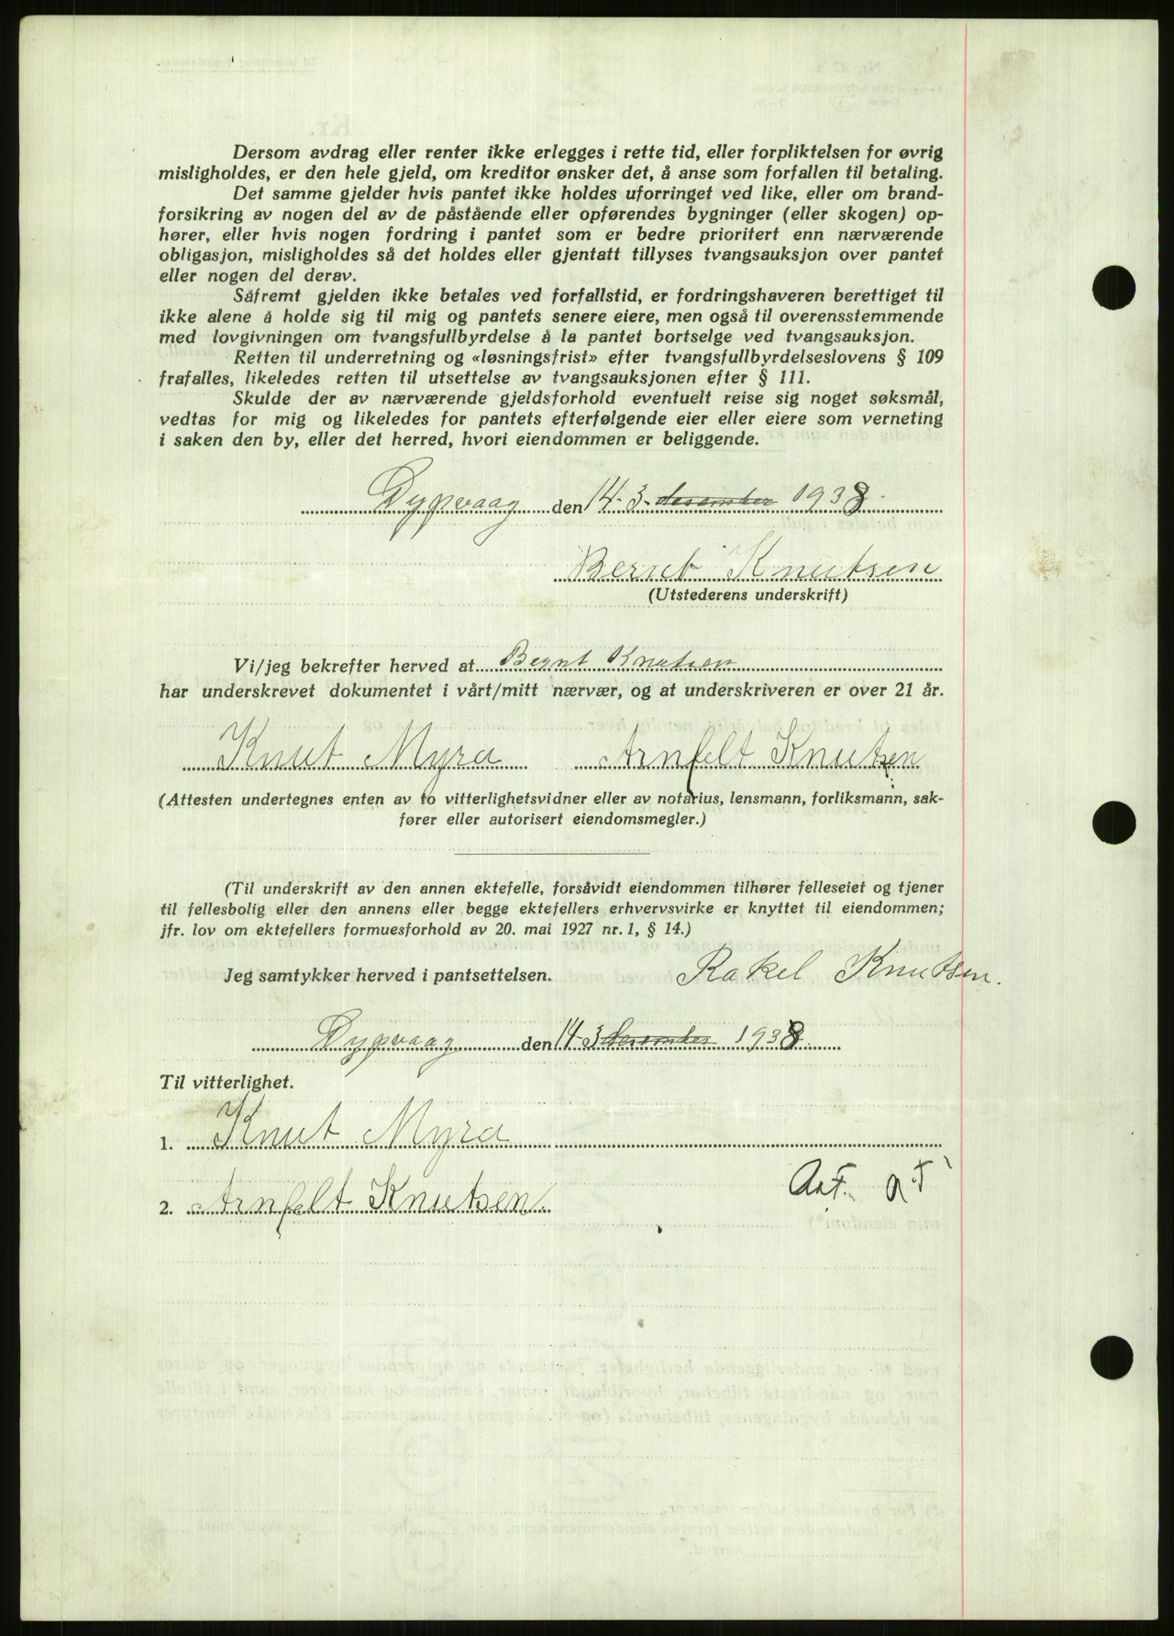 Dersom avdrag eller renter ikke erlegges i rette tid, eller forpliktelsen for øvrig
misligholdes, er den hele gjeld, om kreditor ønsker det, å anse som forfallen til betaling.
Det samme gjelder hvis pantet ikke holdes uforringet ved like, eller om brand-
forsikring av nogen del av de påstående eller opførendes bygninger (eller skogen) op-
hører, eller hvis nogen fordring i pantet som er bedre prioritert enn nærværende
obligasjon, misligholdes så det holdes eller gjentatt tillyses tvangsauksjon over pantet
eller nogen del derav.
Såfremt gjelden ikke betales ved forfallstid, er fordringshaveren berettiget til
ikke alene å holde sig til mig og pantets senere eiere, men også til overensstemmende
med lovgivningen om tvangsfullbyrdelse å la pantet bortselge ved tvangsauksjon.
Retten til underretning og «løsningsfrist» efter tvangsfullbyrdelseslovens § 109
frafalles, likeledes retten til utsettelse av tvangsauksjonen efter § 111.
Skulde der av nærværende gjeldsforhold eventuelt reise sig noget søksmål,
vedtas for mig og likeledes for pantets efterfølgende eier eller eiere som verneting
i saken den by, eller det herred, hvori eiendommen er beliggende.
Dypvaag den 14-3- desember 1938
Bernt Knutsen
(Utstederens underskrift)
Vi/jeg bekrefter herved at Bernt Knutsen
har underskrevet dokumentet i vårt/mitt nærvær, og at underskriveren er over 21 år.
Knut Myra Arnfelt Knutsen
(Attesten undertegnes enten av to vitterlighetsvidner eller av notarius, lensmann, forliksmann, sak-
fører eller autorisert eiendomsmegler.)
(Til underskrift av den annen ektefelle, forsåvidt eiendommen tilhører felleseiet og tjener
til fellesbolig eller den annens eller begge ektefellers erhvervsvirke er knyttet til eiendommen;
jfr. lov om ektefellers formuesforhold av 20. mai 1927 nr. 1, § 14.)
Jeg samtykker herved i pantsettelsen. Rakel Knutsen.
Dypvaag den 14-3 desember 1938
Til vitterlighet.
1. Knut Myra
2. Arnfelt Knutsen